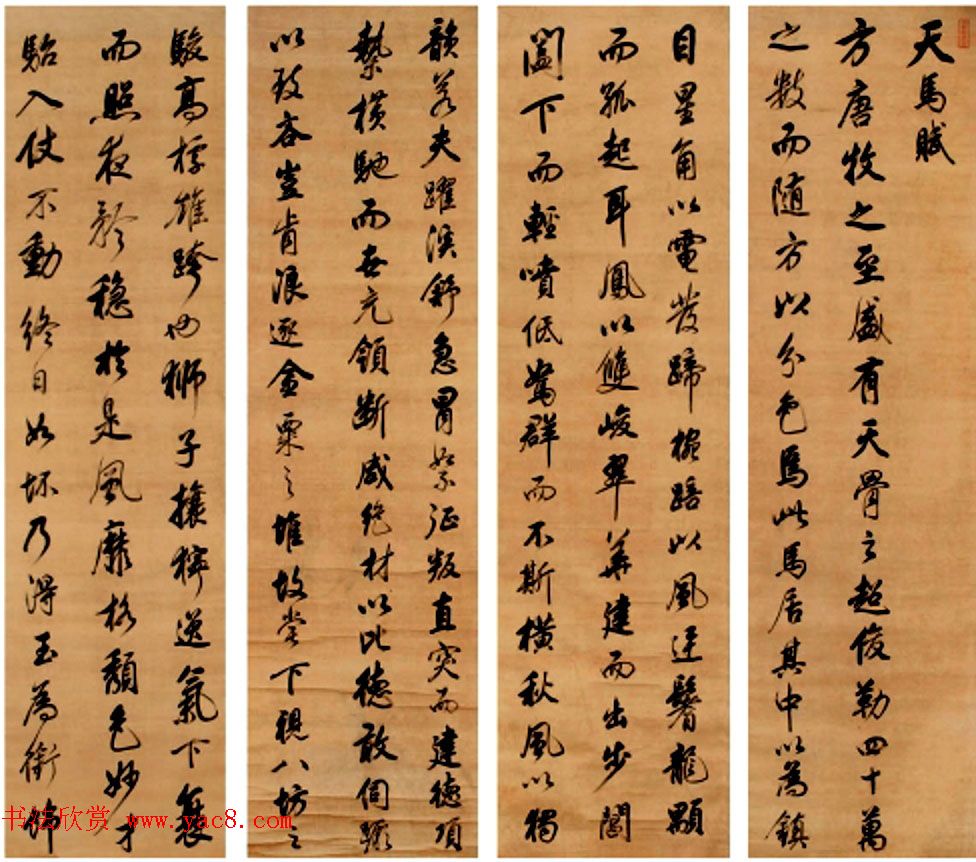 天馬賦
方唐牧之至盛有天骨之超俊勒四十萬
之數而随方以分色焉此馬居其中以為鎮
目星角以電發蹄椀踣以風迋鬐龍顒
而孤起耳鳳以雙峻翠華建而出步閶
闔下而輕噴低駑群而不斯横秋風以獨
韻若夫躍溪舒急冒絮征叛直突而建德項
縶横馳而世充領斷咸絶材以比德敢伺蹶
以致吝豈肯浪逐金粟之堆故當下視八坊之
駿高標雄跨也獅子攘獰逸氣下衰
而照夜矜穩於是風靡格頽色妙才
駘入仗不動終日如坏乃得玉為銜飾
书法欣赏 www.yac8.com